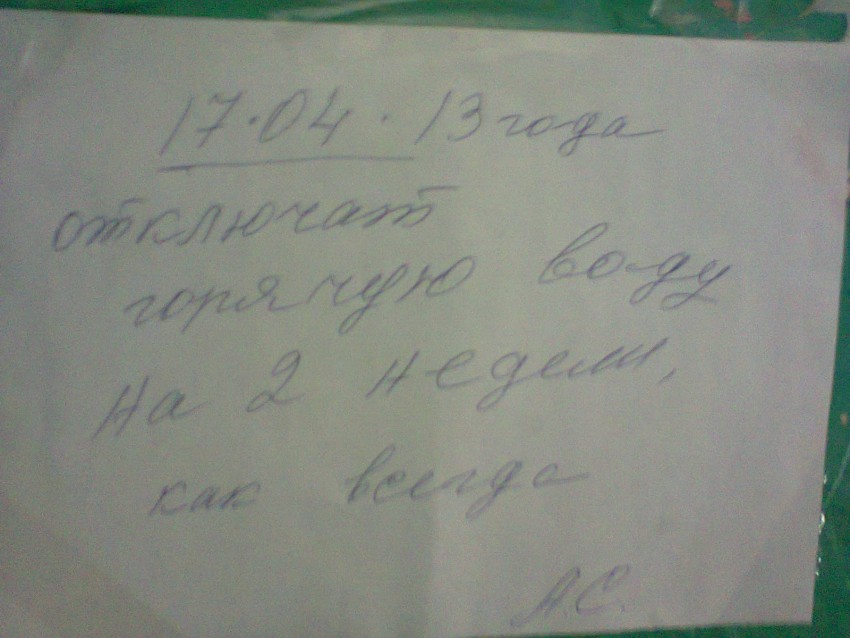 17.04.13 года
отключат
горячую воду
на 2 недели,
как всегда
А.С.